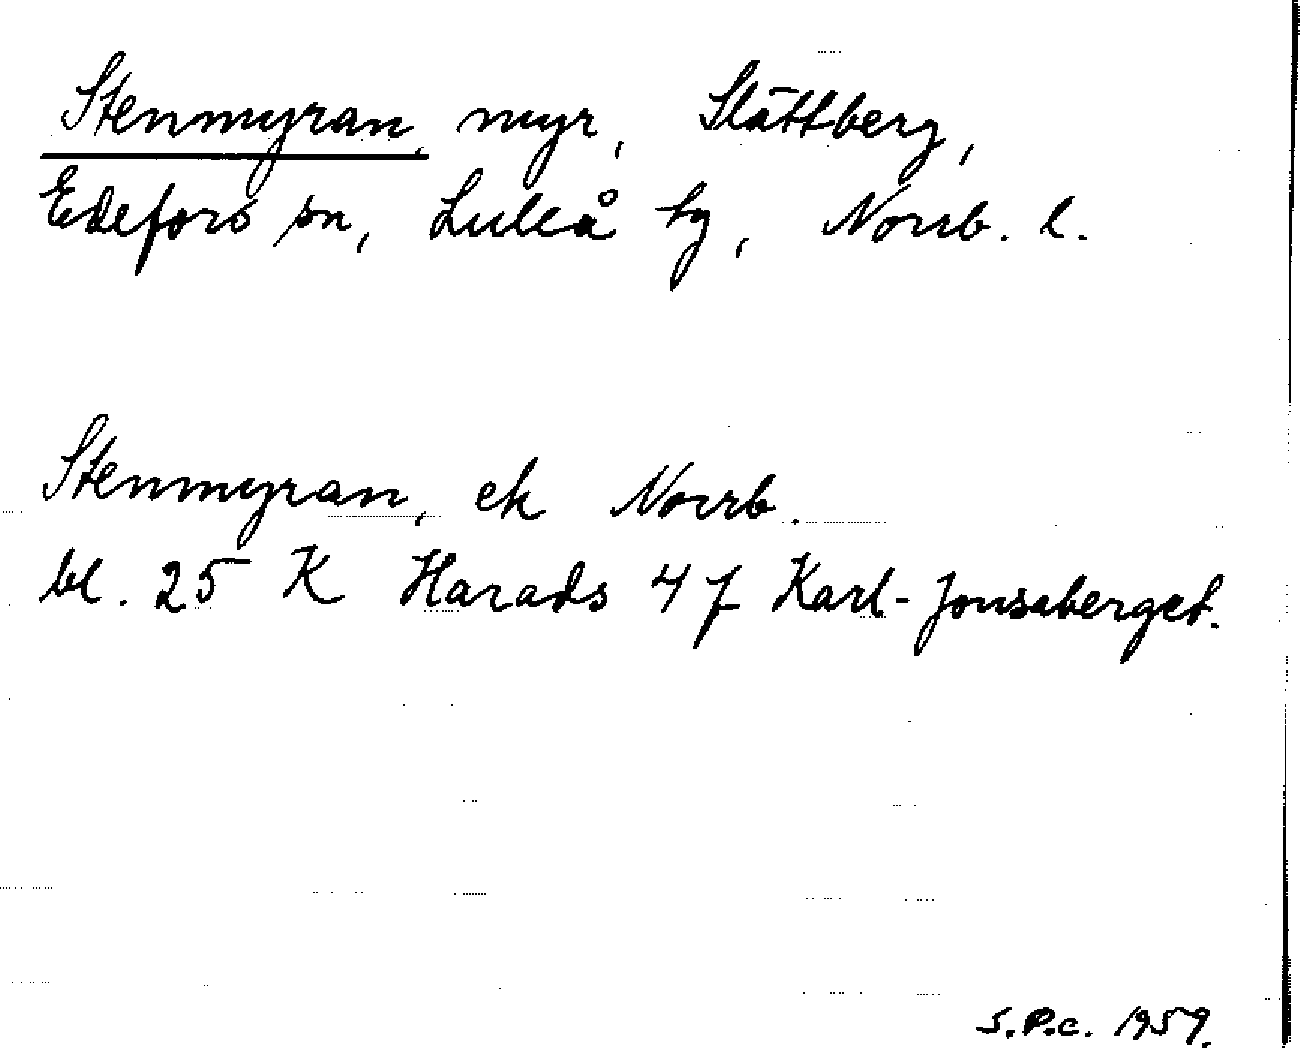 Stenmyran, myr, Slättberg,
Edefors sn, Luleå hg, Norrb. l.
Stenmyran, ek Norrb.
bl. 25 K Harads 4 f Karl-Jonsaberget.
S.P.c. 1959.